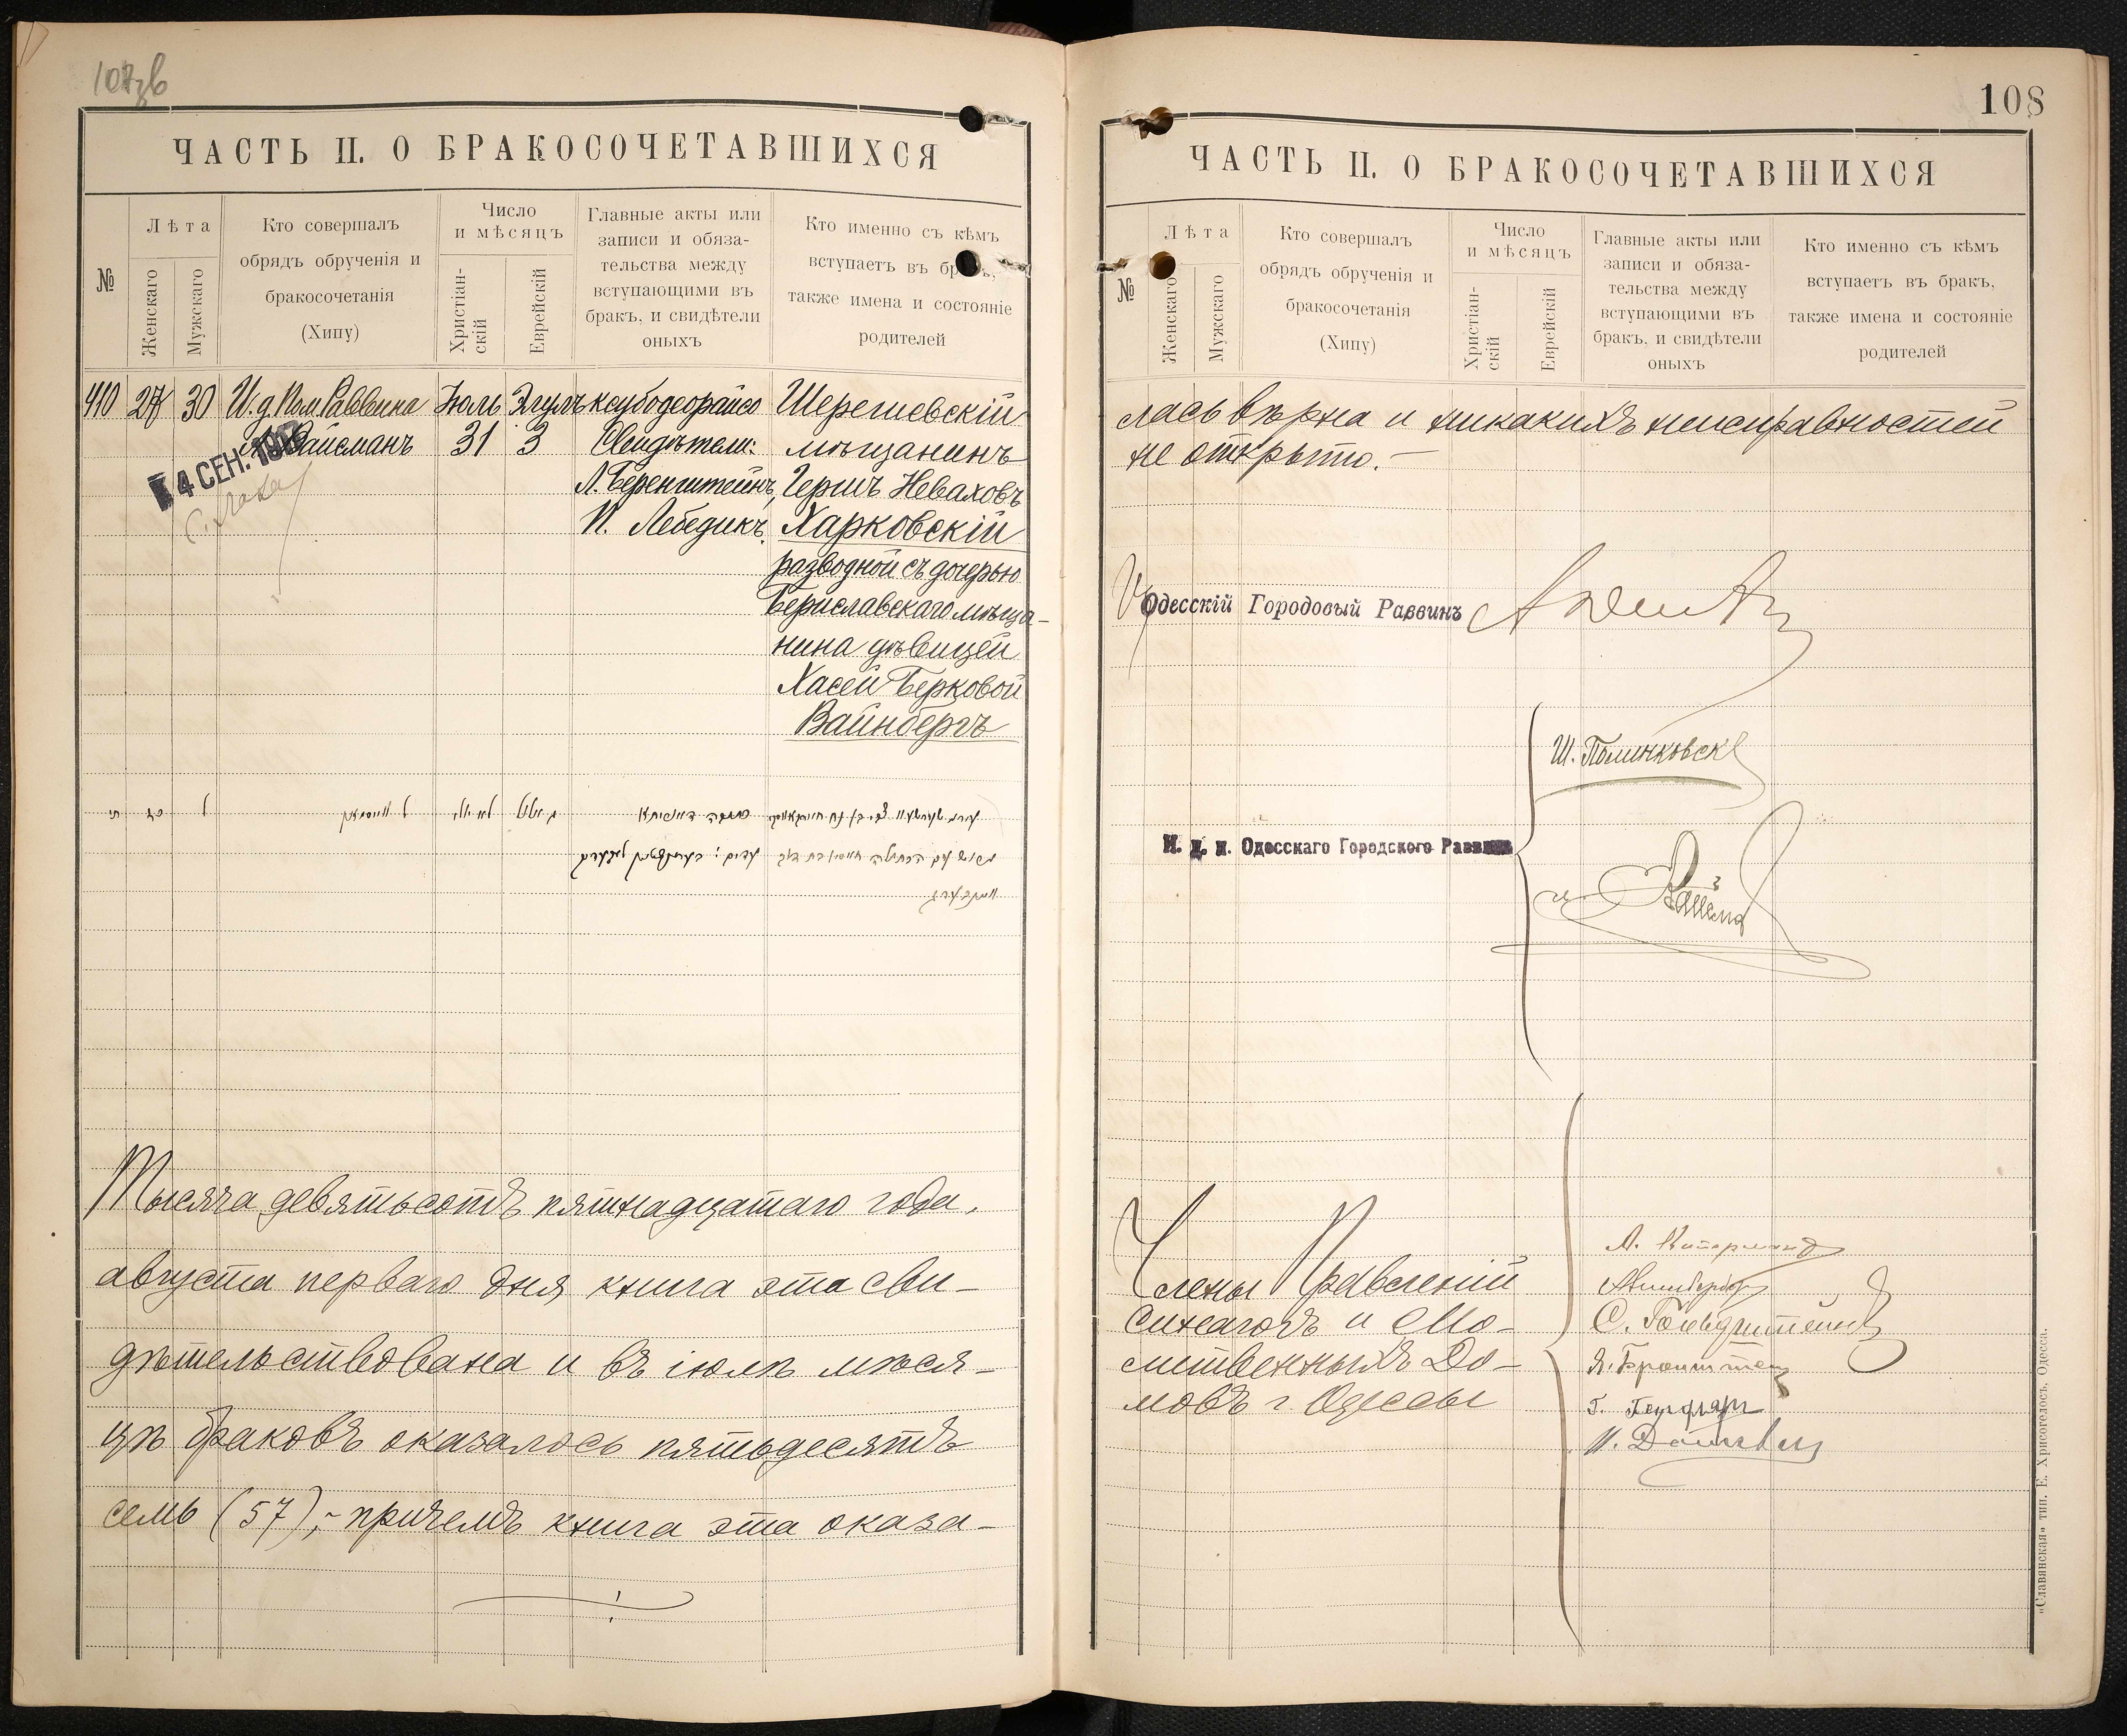 107зв
ЧАСТЬ II. О БРАКОСОЧЕТАВШИХСЯ
№
Лѣта
Женскаго
Мужскаго
Кто совершалъ
обрядъ обрученія и
бракосочетанія
(Хипу)
Число
и мѣсяцъ
Христіан-
скій
Еврейскій
Главные акты или
записи и обяза-
тельства между
вступающими въ
бракъ, и свидѣтели
оныхъ
Кто именно съ кѣмъ
вступаетъ въ бракъ,
также имена и состояніе
родителей
410 27 30 И.д. Пом. Раввина Іюль Элулъ ксубодеорайсо Шерешевскій
Вайсманъ 31 3 Свидѣтели: мѣщанинъ
4 СЕН.
Л. Беренштейнъ, Гершъ Неваховъ
И. Лебедикъ. Харковскій
разводной съ дочерью
Бериславскаго мѣща-
нина дѣвицей
Хасей Берковой
Вайнбергъ
Тысяча девятьсотъ пятнадцатаго года,
августа перваго дня книга эта сви-
дѣтельствована и въ іюлѣ мѣся-
цѣ браковъ оказалось пятьдесятъ
семь (57),- причемъ книга эта оказа-
108
ЧАСТЬ II. О БРАКОСОЧЕТАВШИХСЯ
№
Лѣта
Женскаго
Мужскаго
Кто совершалъ
обрядъ обрученія и
бракосочетанія
(Хипу)
Число
и мѣсяцъ
Христіан-
скій
Еврейскій
Главные акты или
записи и обяза-
тельства между
вступающими въ
бракъ, и свидѣтели
оныхъ
Кто именно съ кѣмъ
вступаетъ въ бракъ,
также имена и состояніе
родителей
лась вѣрна и никакихъ неисправностей
не открыто.-
Одесскій Городовый Раввинъ
Ш. Полинковск
И. д. п. Одесскаго Городского Раввина
Члены Правленій
синагогъ и Мо-
литвенныхъ До-
мовъ г. Одессы
С. Гольдштейнъ
Я. Бронштейн
«Славянская» тип. Е. Хрисогелосъ, Одесса.